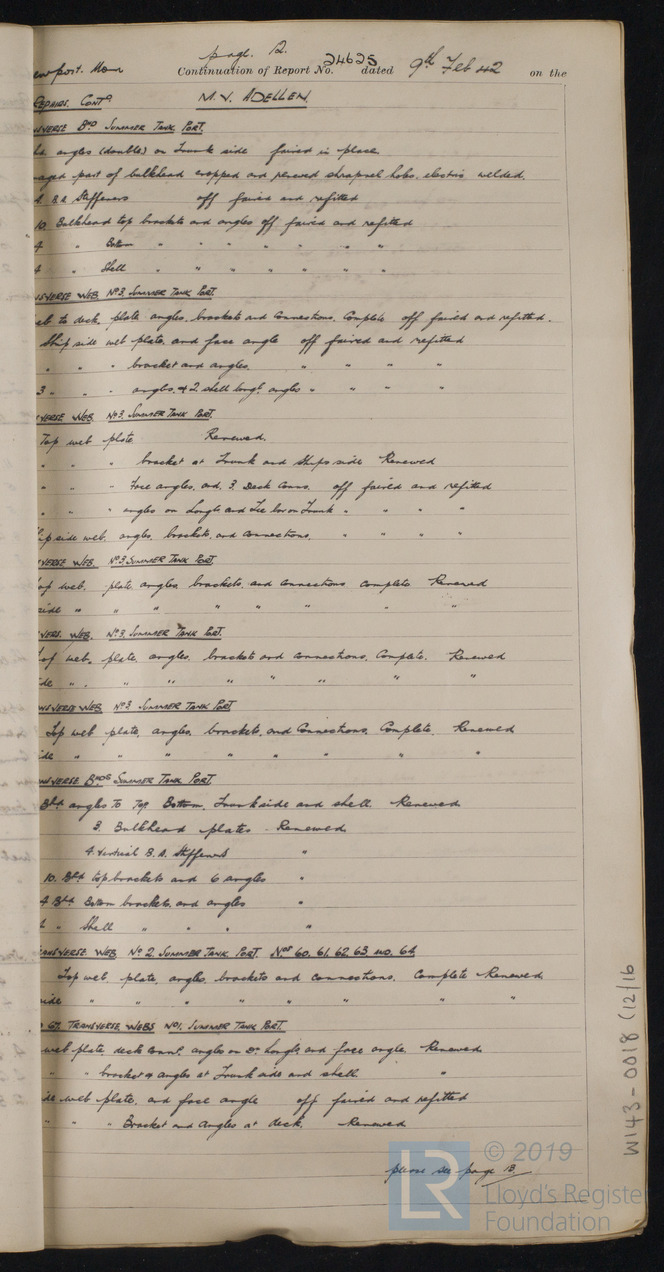 page. 12.
ewport. Mon Continuation of Report No. 24625 dated 9th Feb 42 on the
REPAIRS. CONTD M.V. ADELLEN.
NSVERSE BHD SUMMER TANK PORT.
angles (double) on Trunk side faired in place
aged part of bulkhead cropped and renewed shrapnel holes electric welded.
4 B.A Stiffeners off faired and refitted
10 Bulkhead top brackets and angles off faired and refitted
4 " Bottom " " " " " " "
4 " Shell " " " " " " "
NSVERSE WEB No 3 SUMMER TANK PORT.
web to deck, plate angles, brackets and connections, Complete off faired and refitted.
Ship side web plate, and face angle off faired and refitted
" " " bracket and angles, " " " "
3 " " " angles, & 2. shell longl. angles " " " "
VERSE WEB. No 3. SUMMER TANK PORT.
Top web plate Renewed.
" " " bracket at Trunk and Ships side Renewed
" " " Face angles, and 3. Deck Conns. off faired and refitted
" " " angles on Longls and Tee bar on Trunk " " " "
hip side web, angles, brackets, and connections, " " " "
VERSE WEB. No 3. SUMMER TANK PORT.
op web, plate, angles, brackets, and connections, complete Renewed
side " " " " " " " "
VERS. WEB. No 3. SUMMER TANK PORT.
op web, plate, angles, brackets and connections, Complete. Renewed
ide " " " " " " " "
NSVERSE WEB No 3 SUMMER TANK PORT
Top web plate, angles, brackets, and Connections, Complete. Renewed
ide " " " " " " " "
NSVERSE BHD6 SUMMER TANK PORT.
Bhd angles To Top Bottom, Trunkside and shell Renewed
3. Bulkhead plates Renewed
4 Vertical B.A. Stiffeners "
10. Bhd top brackets and 6 angles "
4 Bhd Bottom brackets, and angles "
" Shell " " " "
ANSVERSE WEB No 2 SUMMER TANK PORT. Nos 60. 61. 62 63 AND. 64
Top web, plate, angles, brackets and connections, Complete Renewed
side " " " " " " "
67. TRANSVERSE, WEBS No 1. SUMMER TANK PORT.
web plate, deck connt. angles on Do Longls, and face angle Renewed
" " bracket & angles at Trunk side and shell "
ide web plate, and face angle off faired and refitted
" " " Bracket and Angles at deck, Renewed
please see page 13.
W143-0018 (12)16
LR
© 2019
Lloyd's Register
Foundation